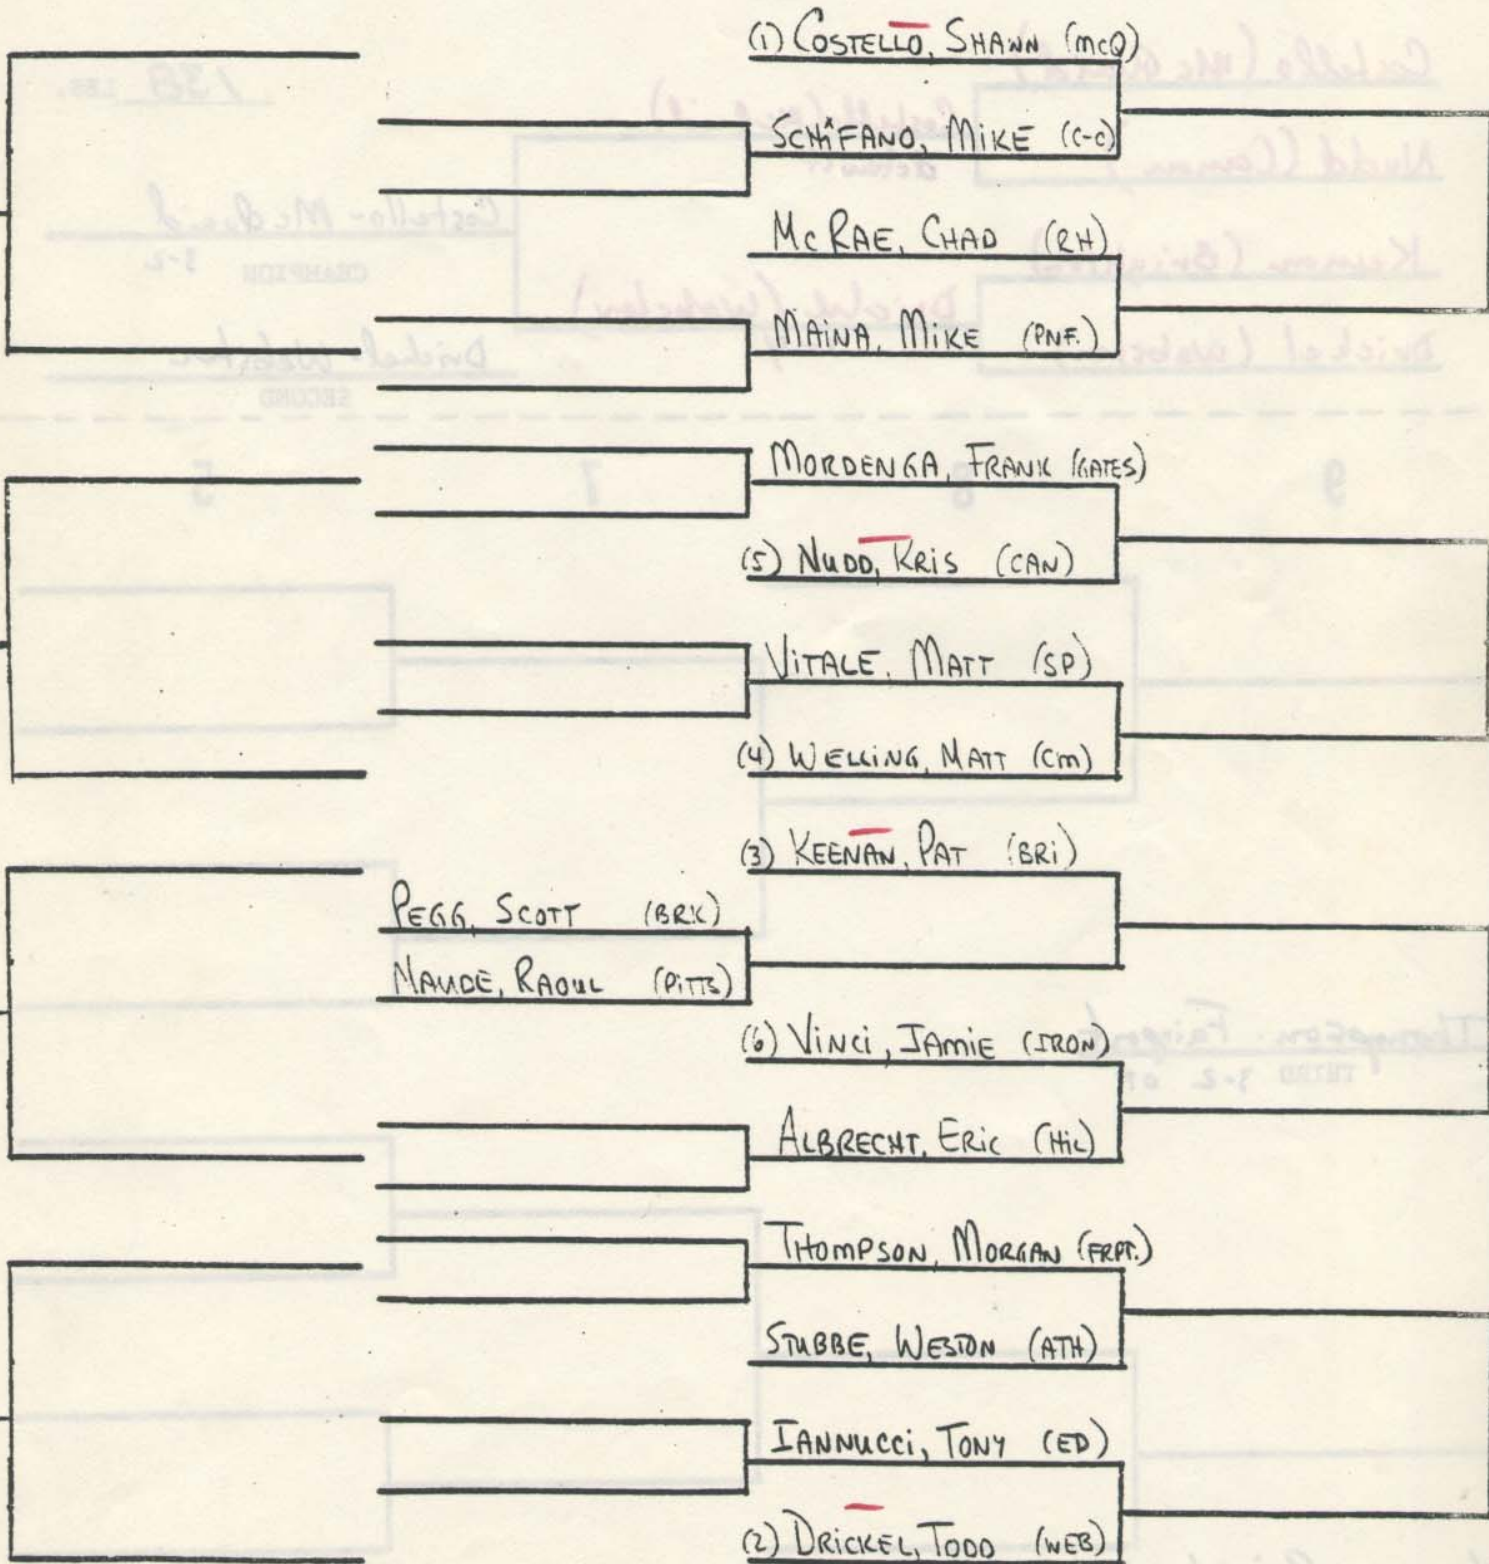 (1) COSTELLO, SHAWN (McQ)
SCHIFANO, MIKE (C-C)
McRAE, CHAD (RH)
MAINA, MIKE (PNF.)
MORDENGA, FRANK (GATES)
(5) NUDD, KRIS (CAN)
VITALE, MATT (SP)
(4) WELLING, MATT (CM)
(3) KEENAN, PAT (BRI)
PEGG, SCOTT (BRK)
MAUDE, RAOUL (PITTS)
(6) VINCI, JAMIE (IRON)
ALBRECHT, ERIC (HIL)
THOMPSON, MORGAN (FRPT.)
STUBBE, WESTON (ATH)
IANNUCCI, TONY (ED)
(2) DRICKEL, TODD (WEB)